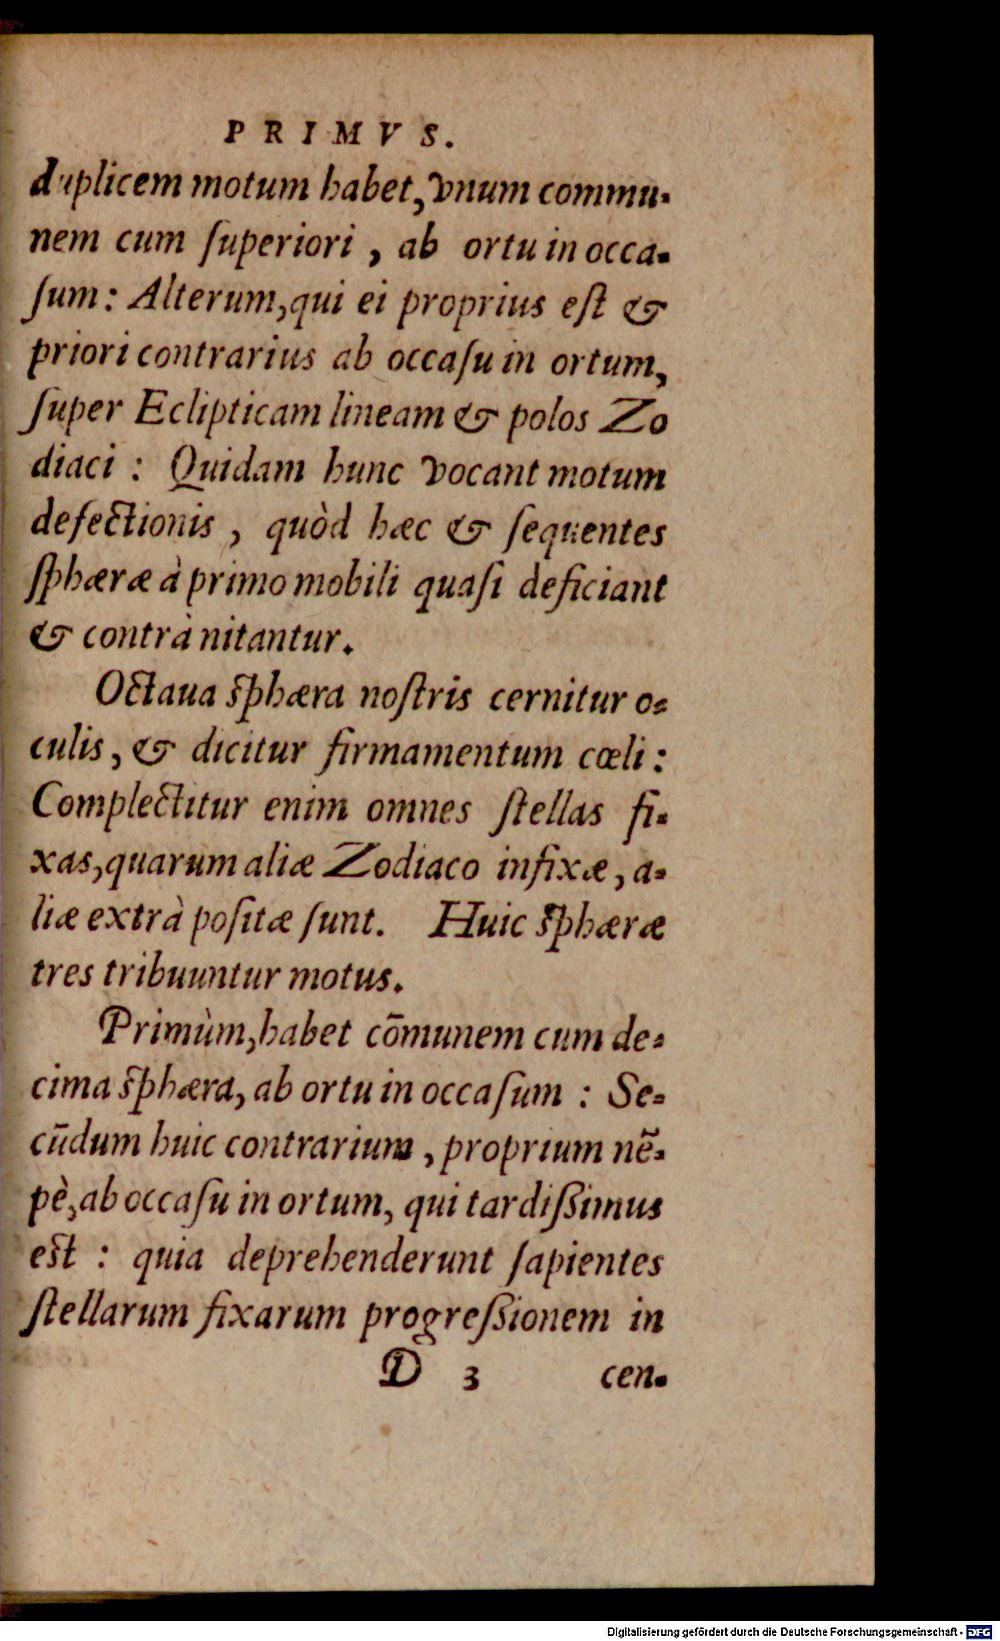 PRIMVS.
duplicem motum habet, vnum commu-
nem cum ſuperiori, ab ortu in occa-
ſum: Alterum, qui ei proprius eſt &
priori contrarius ab occaſu in ortum,
ſuper Eclipticam lineam & polos Zo
diaci: Quidam hunc vocant motum
defectionis, quòd hæc & ſequentes
ſphæræ à primo mobili quaſi deficiant
& contrà nitantur.
Octaua ſphæra noſtris cernitur o-
culis, & dicitur firmamentum cœli:
Complectitur enim omnes ſtellas fi-
xas, quarum aliæ Zodiaco infixæ, a-
liæ extrà poſitæ ſunt. Huic ſphæræ
tres tribuuntur motus.
Primùm, habet cōmunem cum de-
cima ſphæra, ab ortu in occaſum: Se-
cūdum huic contrarium, proprium nē-
pè, ab occaſu in ortum, qui tardiſsimus
eſt: quia deprehenderunt ſapientes
ſtellarum fixarum progreſsionem in
D 3 cen-
Digitalisierung gefördert durch die Deutsche Forschungsgemeinschaft - DFG